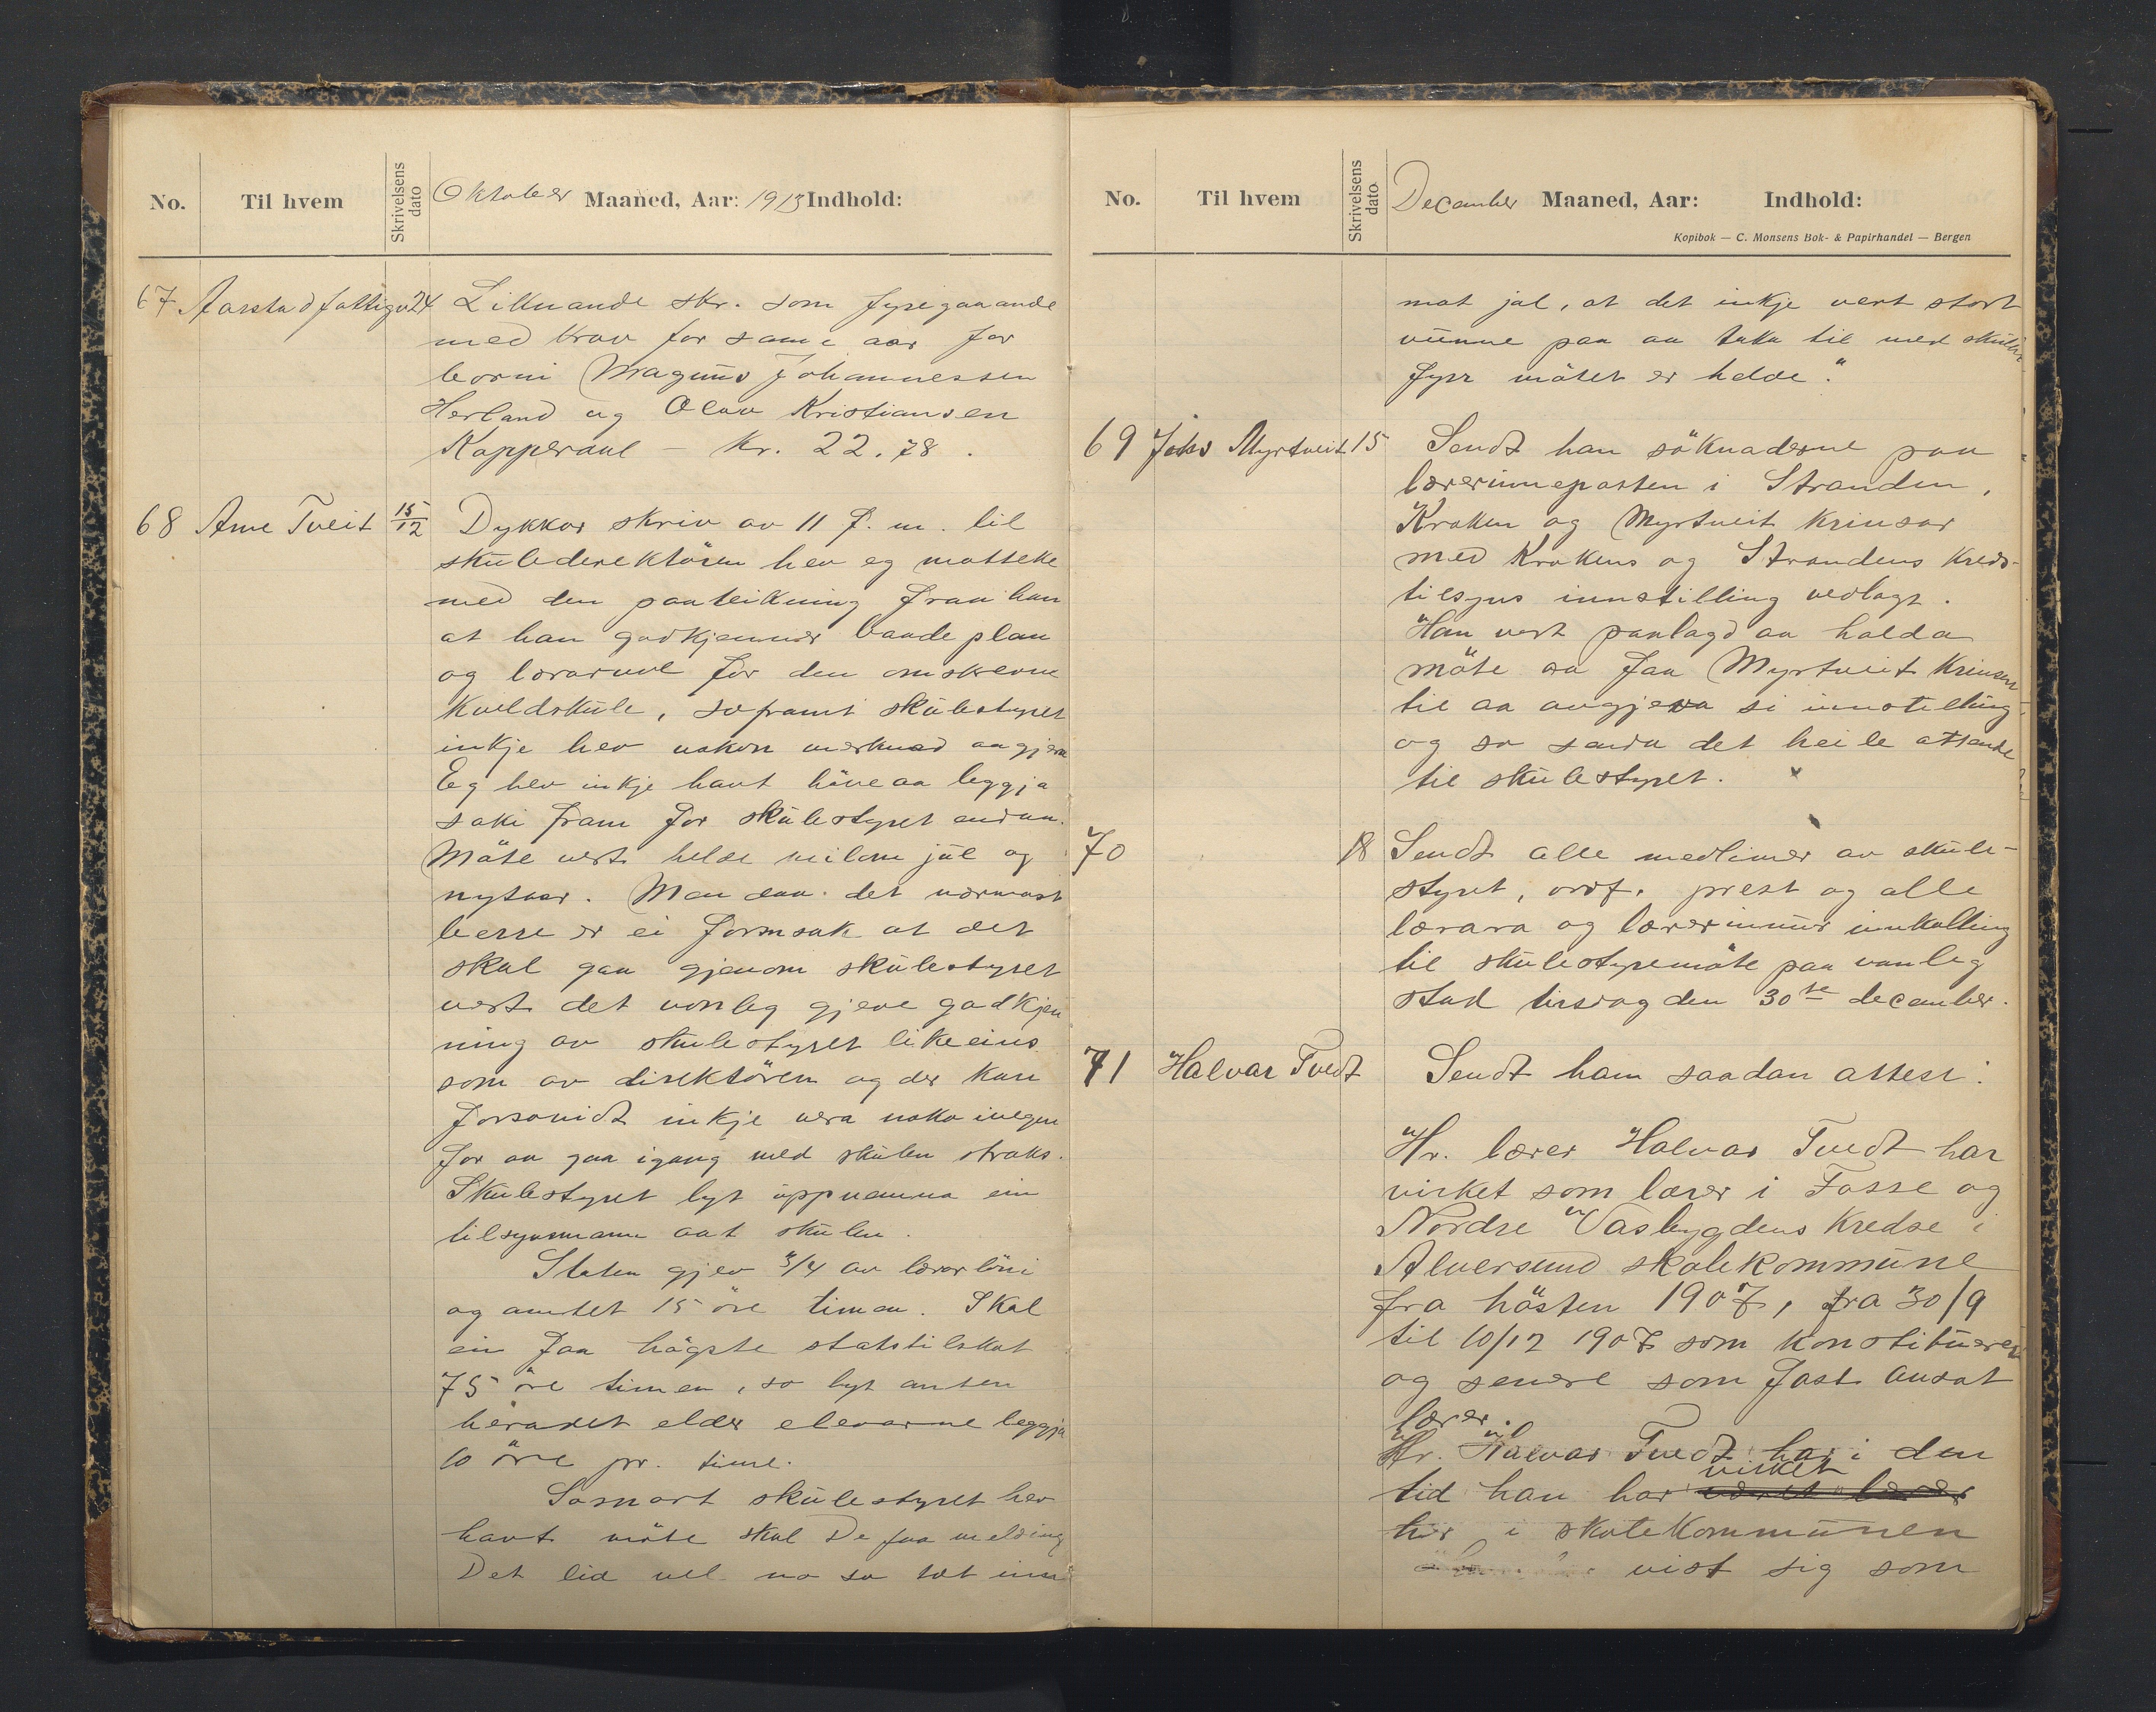 No. Til hvem Skrivelsens dato Oktober Maaned, Aar: 1913 Indhold:
67 Aarstad fattigv. 24 Liknande skr. som fyregaaande
med krav for same aar for
borni Magnus Johannessen
Herland og Olav Kristiansen
Kopperdal – Kr. 22.78.
68 Arne Tveit 15/12 Dykkar skriv av 11 d. m. til
skuledirektören hev eg motteke
med den paateikning fraa han
at han godkjenner baade plan
og lærarar for den omskrevne
kveldskule, soframt skulestyret
inkje hev nokon merknad aa gjera
Eg hev inkje havt höve aa leggja
saki fram for skulestyret endaa.
Möte vert helde millom jul og
nyttaar. Men daa det nærmast
berre er ei formsak at det
skal gaa gjenom skulestyret
vert det vonleg gjeve godkjen
ning av skulestyret likeeins
som av direktören og der kan
forsovidt inkje vera noko ivegen
for aa gaa igang med skulen straks.
Skulestyret lyt uppnemna ein
tilsynsmann aat skulen.
Staten gjev 3/4 av lærarlöni
og amtet 15 öre timen. Skal
ein faa högste statstilskot
75 öre timen, so lyt anten
heradet elder elevarne leggja
10 öre pr. time.
Sosnart skulestyret hev
havt möte skal De faa melding
Det lid vel no so tet inn
No. Til hvem Skrivelsens dato December Maaned, Aar: Indhold:
Kopibok — C. Monsens Bok- & Papirhandel — Bergen
mot jol, at det inkje vert stort
vunne paa aa taka til med skulen
fyrr mötet er helde."
69 Johs Myrtveit 15 Sendt han söknaderne paa
lærerinneposten i Stranden,
Kroken og Myrtveit krinsar
med Krokens og Strandens kreds-
tilsyns innstilling vedlagt.
Han vert paalagd aa halda
möte so faa Myrtveit krinsen
til aa avgjeva si innstelling
og so senda det heile attende
til skulestyret.
70 18 Sendt alle medlimer av skule-
styret, ordf. prest og alle
lærara og lærerinnur innkalling
til skulestyremöte paa vanleg
stad tirsdag den 30te december.
71 Halvar Tvedt Sendt ham saadan attest:
Hr. lærer Halvar Tvedt har
virket som lærer i Fosse og
Nordre Vasbygdens kredse i
Alversund skolekommune
fra hösten 1907, fra 30/9
til 10/12 1907 som konstitueret
og senere som fast ansat
lærer.
Hr. Halvar Tvedt har i den
tid han har virket været lærer
her i skolekommunen
vist sig som